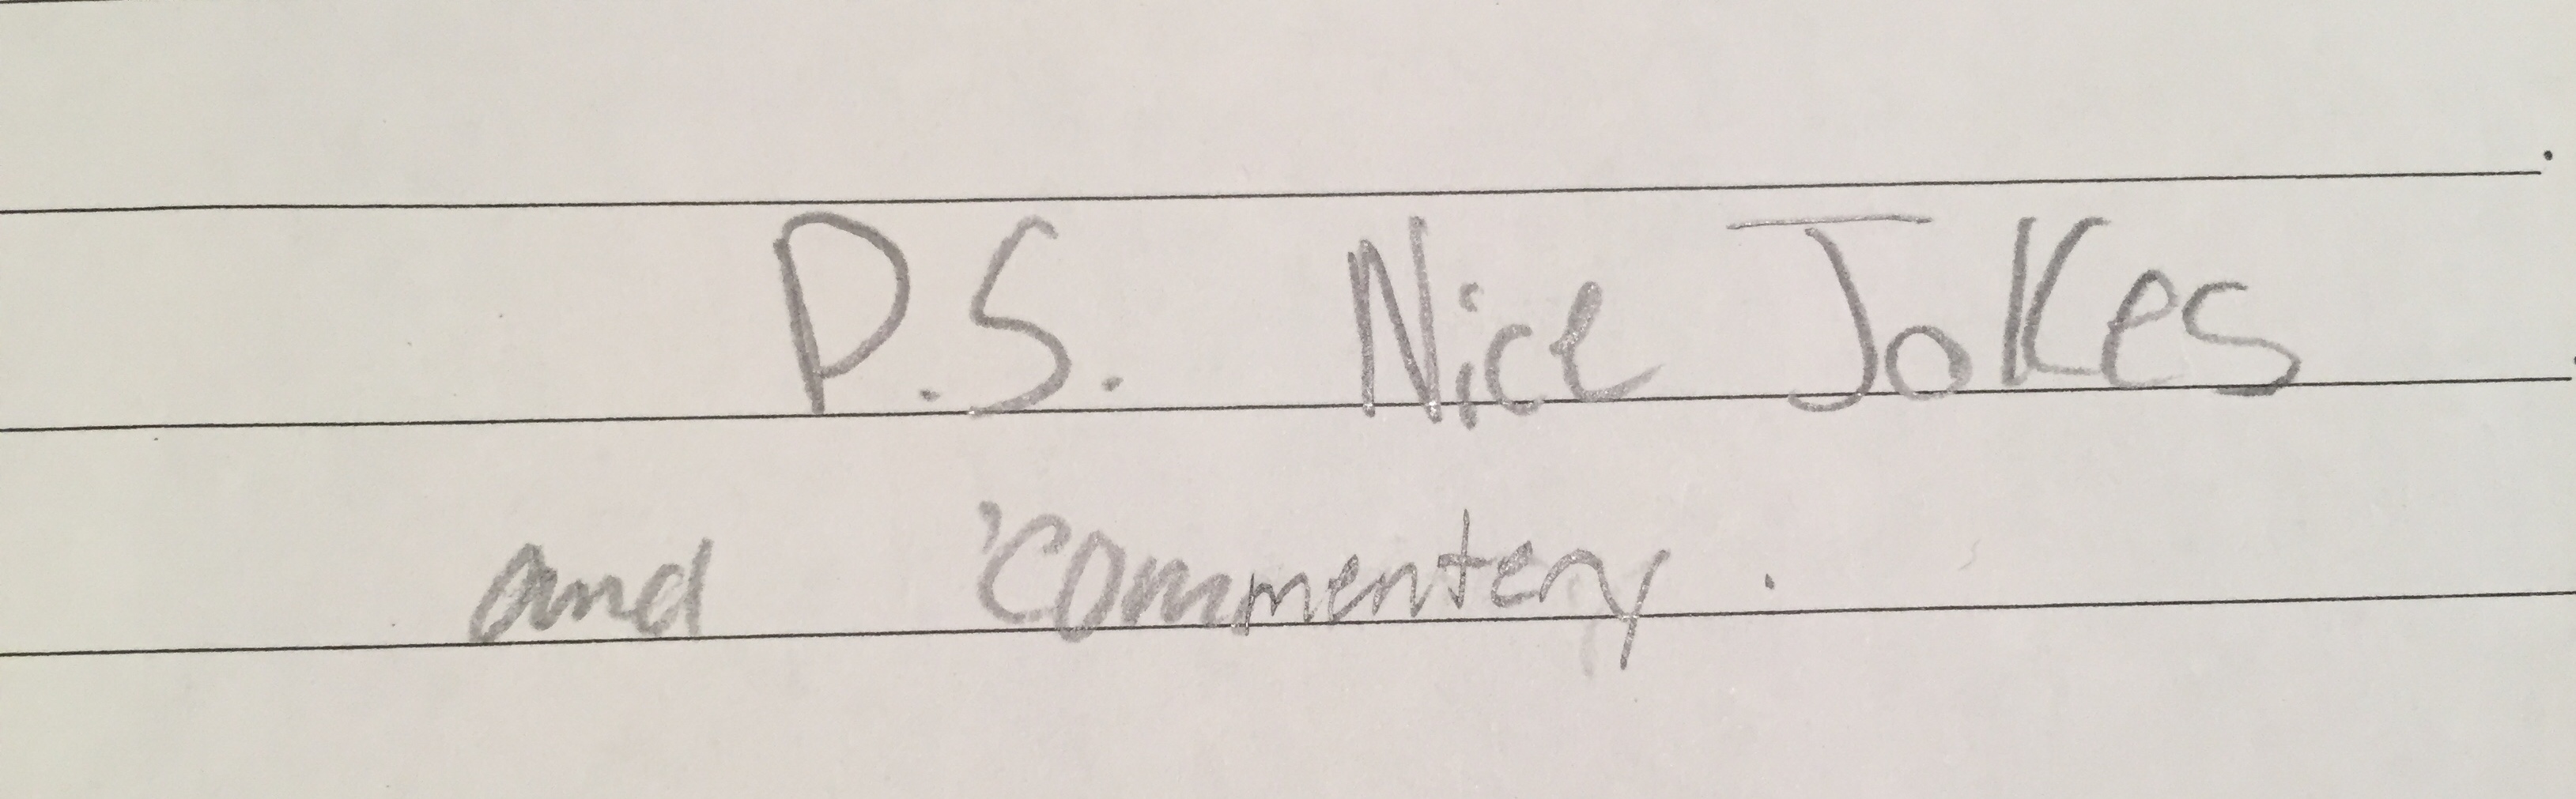 P.S. Nice Jokes
and commentery.